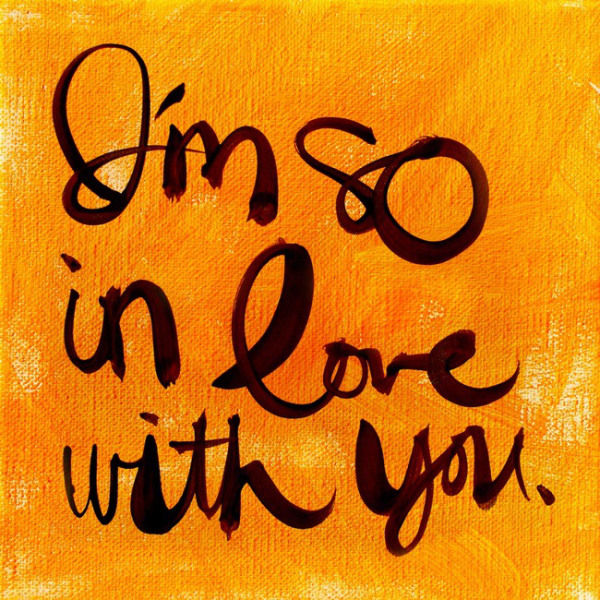 I'm so
in love
with you.